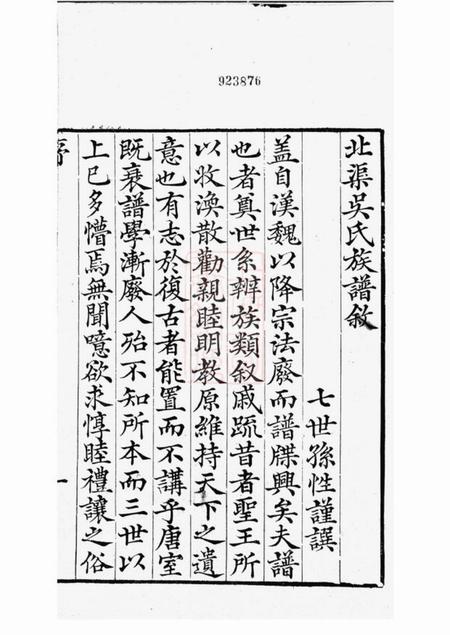 923876
北渠吳氏族譜敘
七世孫性謹譔
蓋自漢魏以降宗法廢而譜牒興矣夫譜
也者奠世系辨族類叙戚疏昔者聖王所
以收渙散勸親睦明教原維持天下之遺
意也有志於復古者能置而不講乎唐室
既衰譜學漸廢人殆不知所本而三世以
上已多懵焉無聞噫欲求惇睦禮讓之俗
序
一